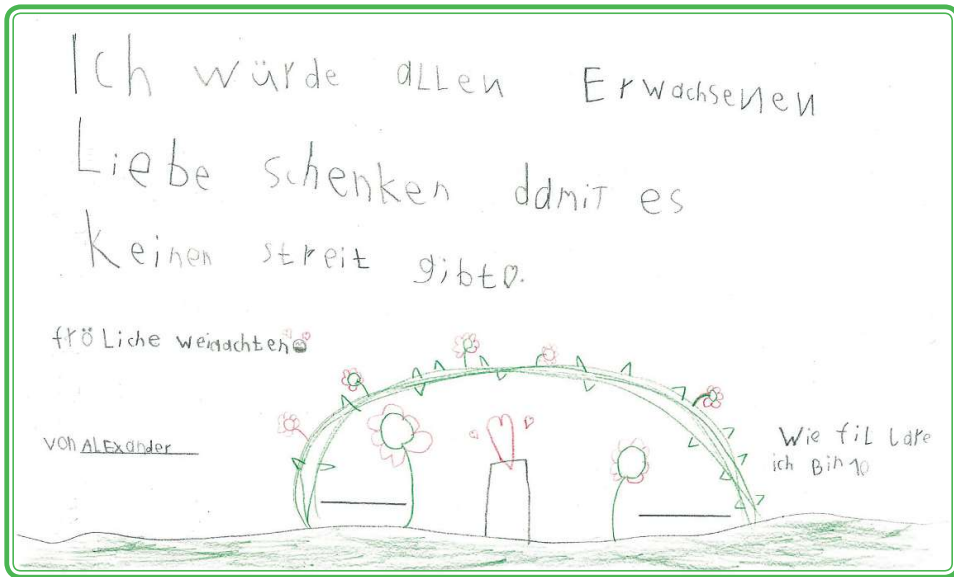 Ich würde allen Erwachsenen
Liebe schenken damit es
Keinen streit gibt♡.
fröLiche weinachten
von ALExander
Wie fiL Lare
ich Bin 10